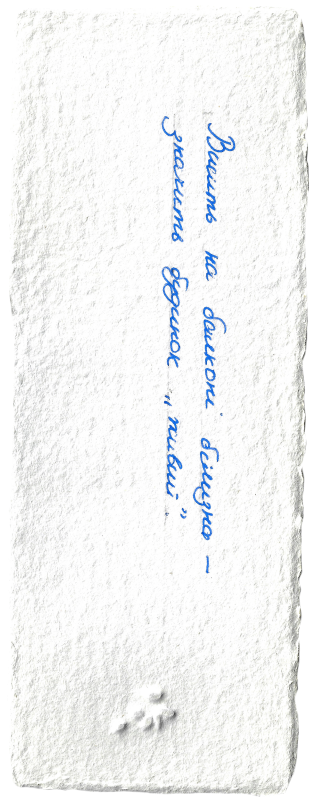 Висить на балконі білизна –
значить будинок „живий"